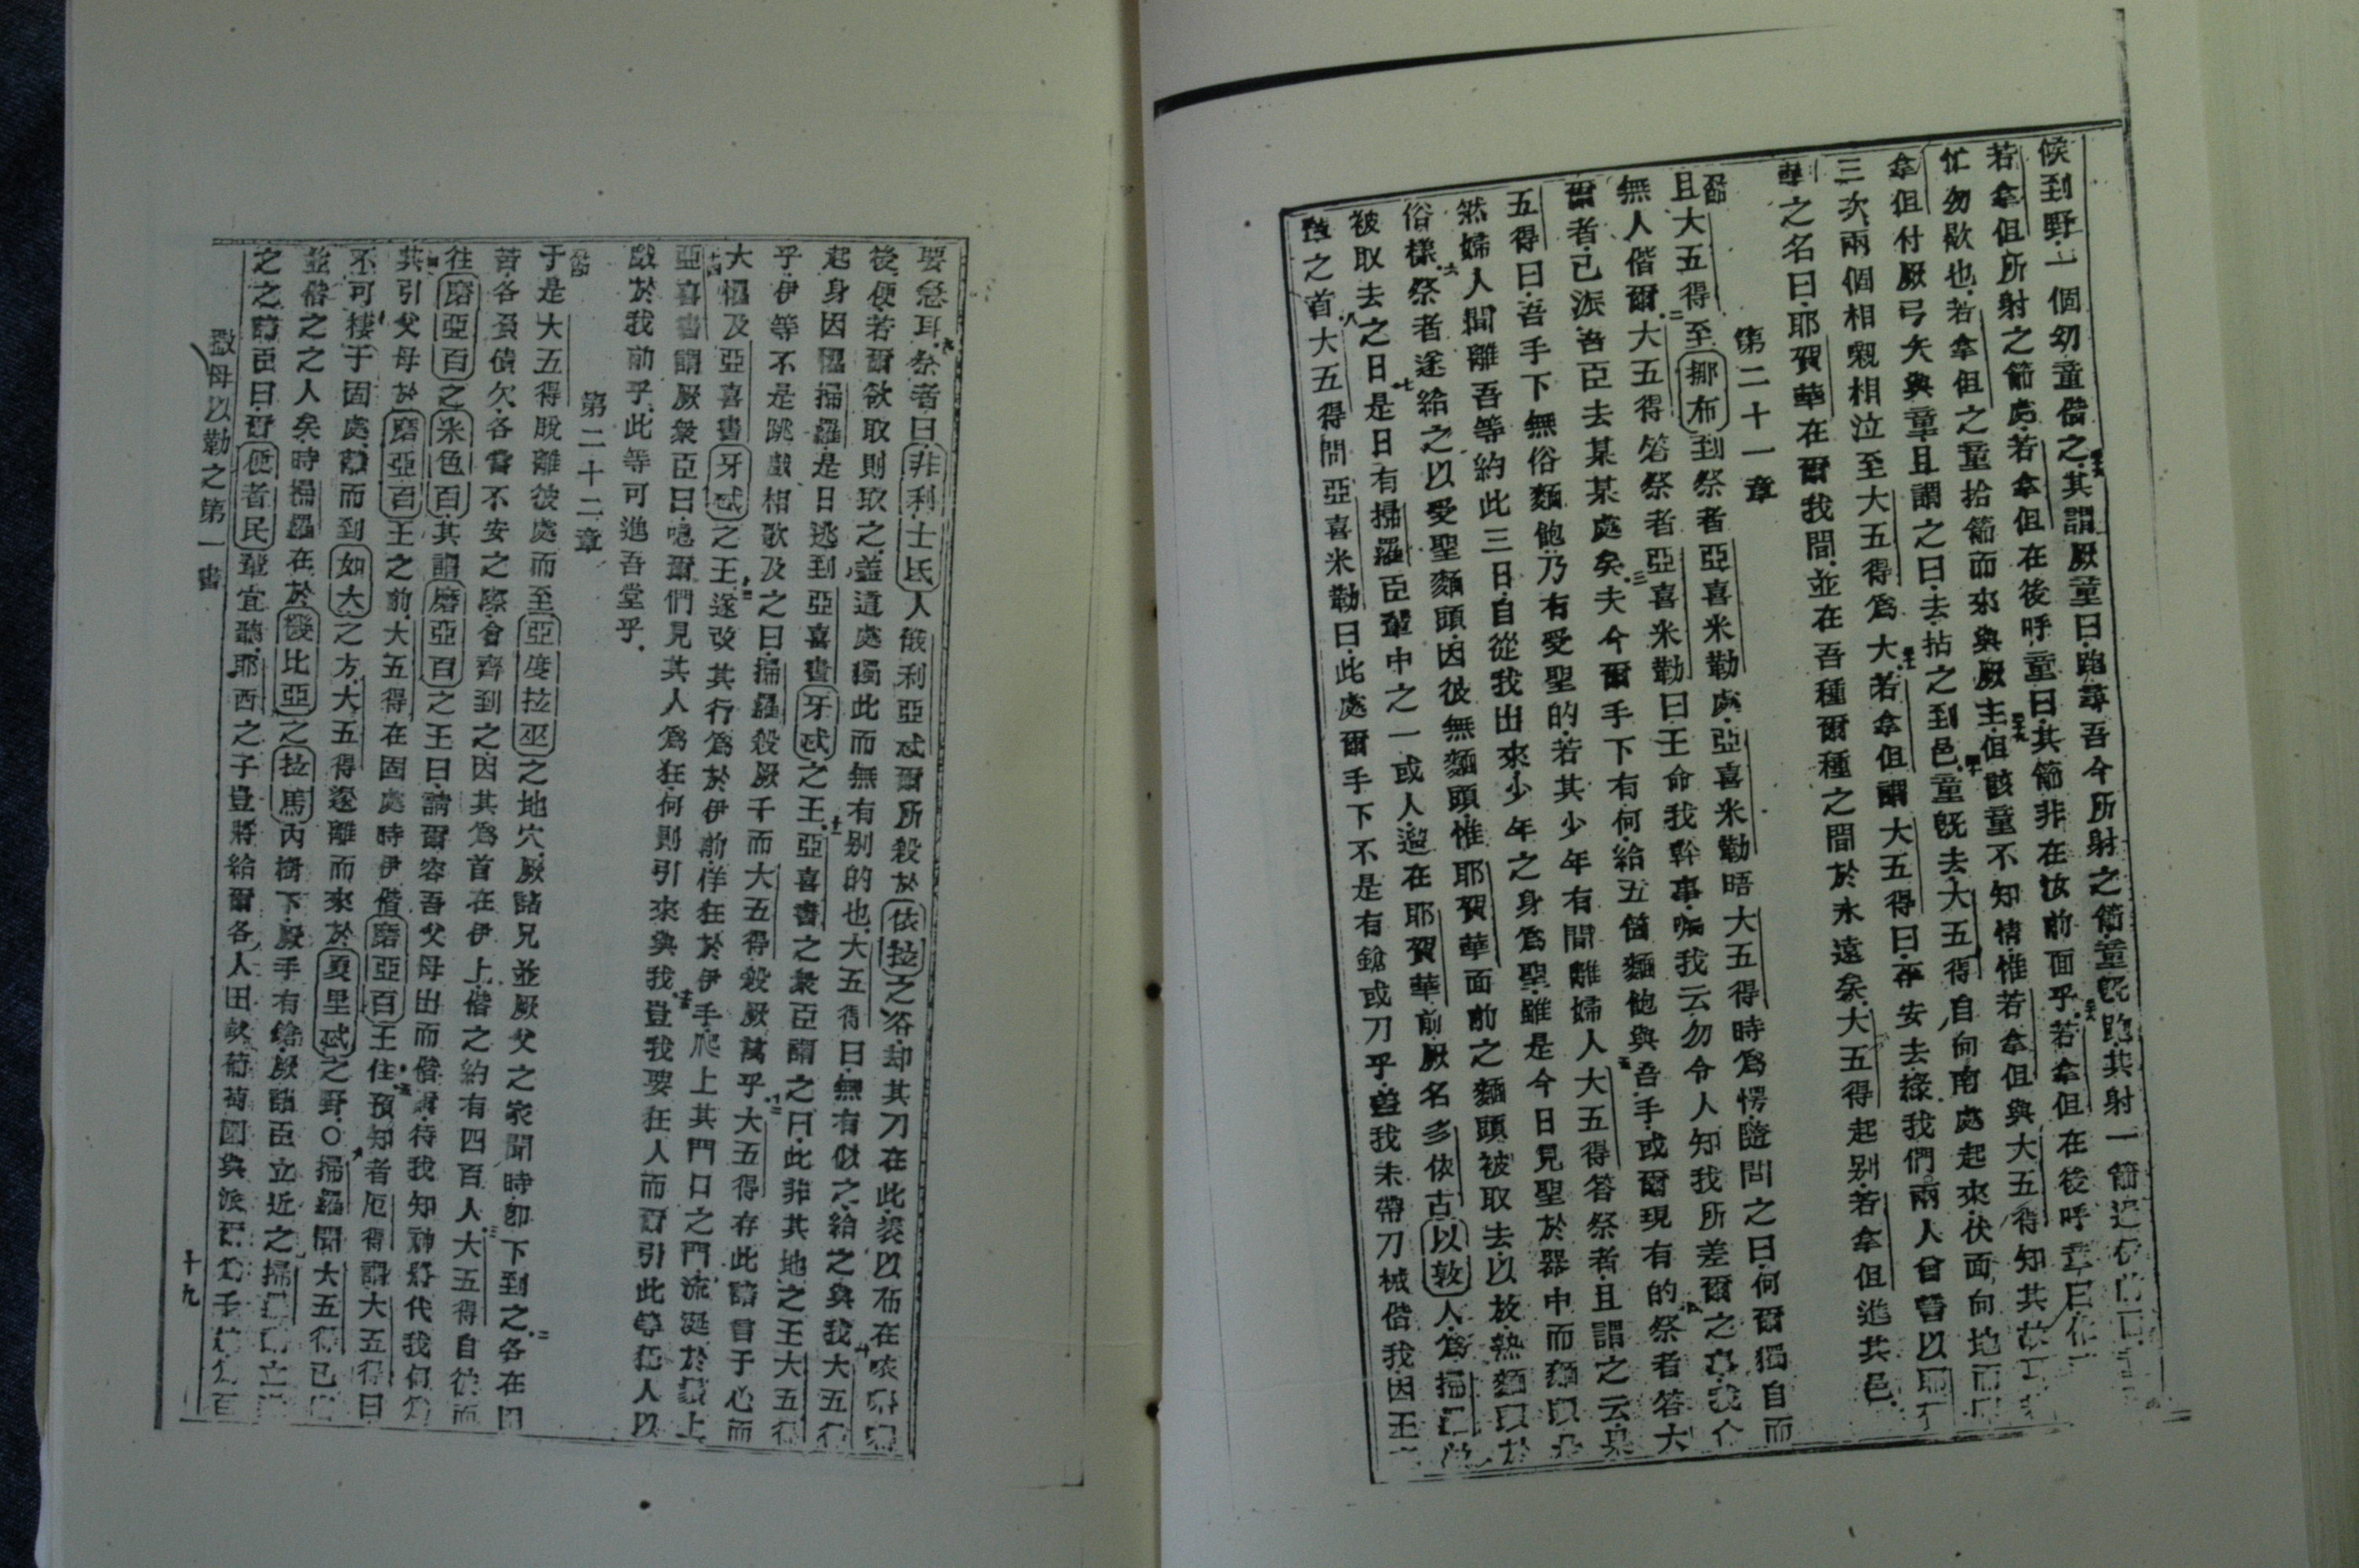 候到野一個幼童偕之其謂厥童曰跑尋吾今所射之箭童旣跑其射一箭
若拿但所射之箭處若拿但在後呼童曰其箭非在汝前面乎若拿但在後呼童曰
忙勿歇也若拿但之童拾箭而來與厥主但該童不知情惟若拿但與大五得知其
拿但付厥弓矢與童且謂之曰去拈之到邑童旣去大五得自向南處起來伏面向地而
三次兩個相親相泣至大五得爲大若拿但謂大五得曰平安去緣我們兩人曾誓以耶
華之名曰耶賀華在爾我間並在吾種爾種之間於永遠矣大五得起别若拿但進其邑
第二十一章
且大五得至挪布到祭者亞喜米勒處亞喜米勒晤大五得時爲愕隨問之曰何爾獨自而
無人偕爾二大五得答祭者亞喜米勒曰王命我幹事囑我云勿令人知我所差爾之事我
爾者已派吾臣去某某處矣三夫今爾手下有何給五箇麵飽與吾手或爾現有的祭者答大
五得曰吾手下無俗麵飽乃有受聖的若其少年有間離婦人大五得答祭者且謂之云
然婦人間離吾等約此三日自從我出來少年之身爲聖雖是今日見聖於器中而麵
俗樣六祭者遂給之以受聖麵頭因彼無麵頭惟耶賀華面前之麵頭被取去以放熱麵頭於
被取去之日七是日有掃羅臣輩中之一或人遒在耶賀華前厥名多依古以敦人爲掃羅
之首八大五得問亞喜米勒曰此處爾手下不是有鎗或刀乎蓋我未帶刀械偕我因王
要急耳九祭者曰非利士氏人俄利亞忒爾所殺於依拉之谷却其刀在此裹以布在
後便若爾欲取則取之蓋這處獨此而無有别的也大五得曰無有似之給之與我十大五得
起身因懼掃羅是日逃到亞喜書牙忒之王十一亞喜書之衆臣謂之曰此非其地之王大五得
乎伊等不是跳戲相歌及之曰掃羅殺厥千而大五得殺厥萬乎十二大五得存此諸言于心而
大懼及亞喜書牙忒之王十三遂改其行爲於伊前佯狂於伊手爬上其門口之門流涎於鬚上
十四亞喜書謂厥衆臣曰噫爾們見其人爲狂何則引來與我十五豈我要狂人而爾引此等狂人以
戲於我前乎此等可進吾堂乎
第二十二章
于是大五得脫離彼處而至亞度拉巫之地穴厥諸兄並厥父之家聞時卽下到之二各在
苦各負債欠各嘗不安之際會齊到之因其爲首在伊上偕之約有四百人三大五得自彼而
往磨亞百之米色百其謂磨亞百之王曰請爾容吾父母出而偕爾待我知神將代我何爲
四其引父母於磨亞百王之前大五得在固處時伊偕磨亞百王住五預知者厄得謂大五得曰
不可棲于固處離而到如大之方大五得遂離而來於夏里忒之野○六掃羅聞大五得已
並偕之之人矣時掃羅在於幾比亞之拉馬丙樹下厥手有鎗厥諸臣立近之掃羅
之之諸臣曰爾便者民輩宜聽耶西之子豈將給爾各人田畝葡萄園與派爾爲千
撒母以勒之第一書
十九